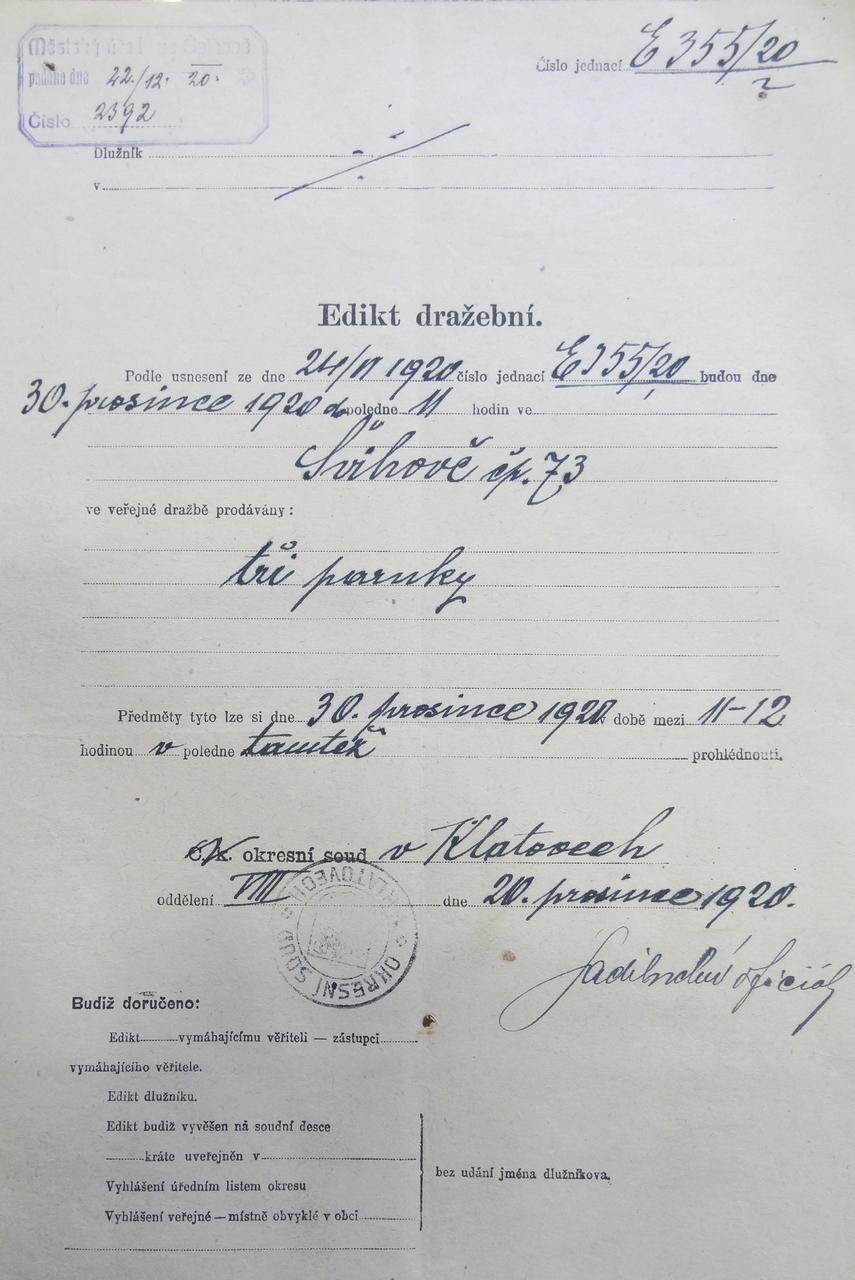 Městský úřad
podáno dne 22/12. 20.
Číslo 2392
Číslo jednací E 355/20
2
Dlužník
v
Edikt dražební.
Podle usnesení ze dne 24/VI 1920 číslo jednací E 355/20 budou dne
30. prosince 1920 dopoledne 11 hodin ve
Švihově čp. 73
ve veřejné dražbě prodávány:
tři paruky
Předměty tyto lze si dne 30. prosince 1920 v době mezi 11-12
hodinou v poledne tamtéž prohlédnouti.
C. k. okresní soud v Klatovech
oddělení VIII dne 20. prosince 1920.
OKRESNÍ SOUD KLATOVECH
oficiál
Budiž doručeno:
Edikt vymáhajícímu věřiteli — zástupci
vymáhajícího věřitele.
Edikt dlužníku.
Edikt budiž vyvěšen na soudní desce
kráte uveřejněn v
bez udání jména dlužníkova.
Vyhlášení úředním listem okresu
Vyhlášení veřejné — místně obvyklé v obci